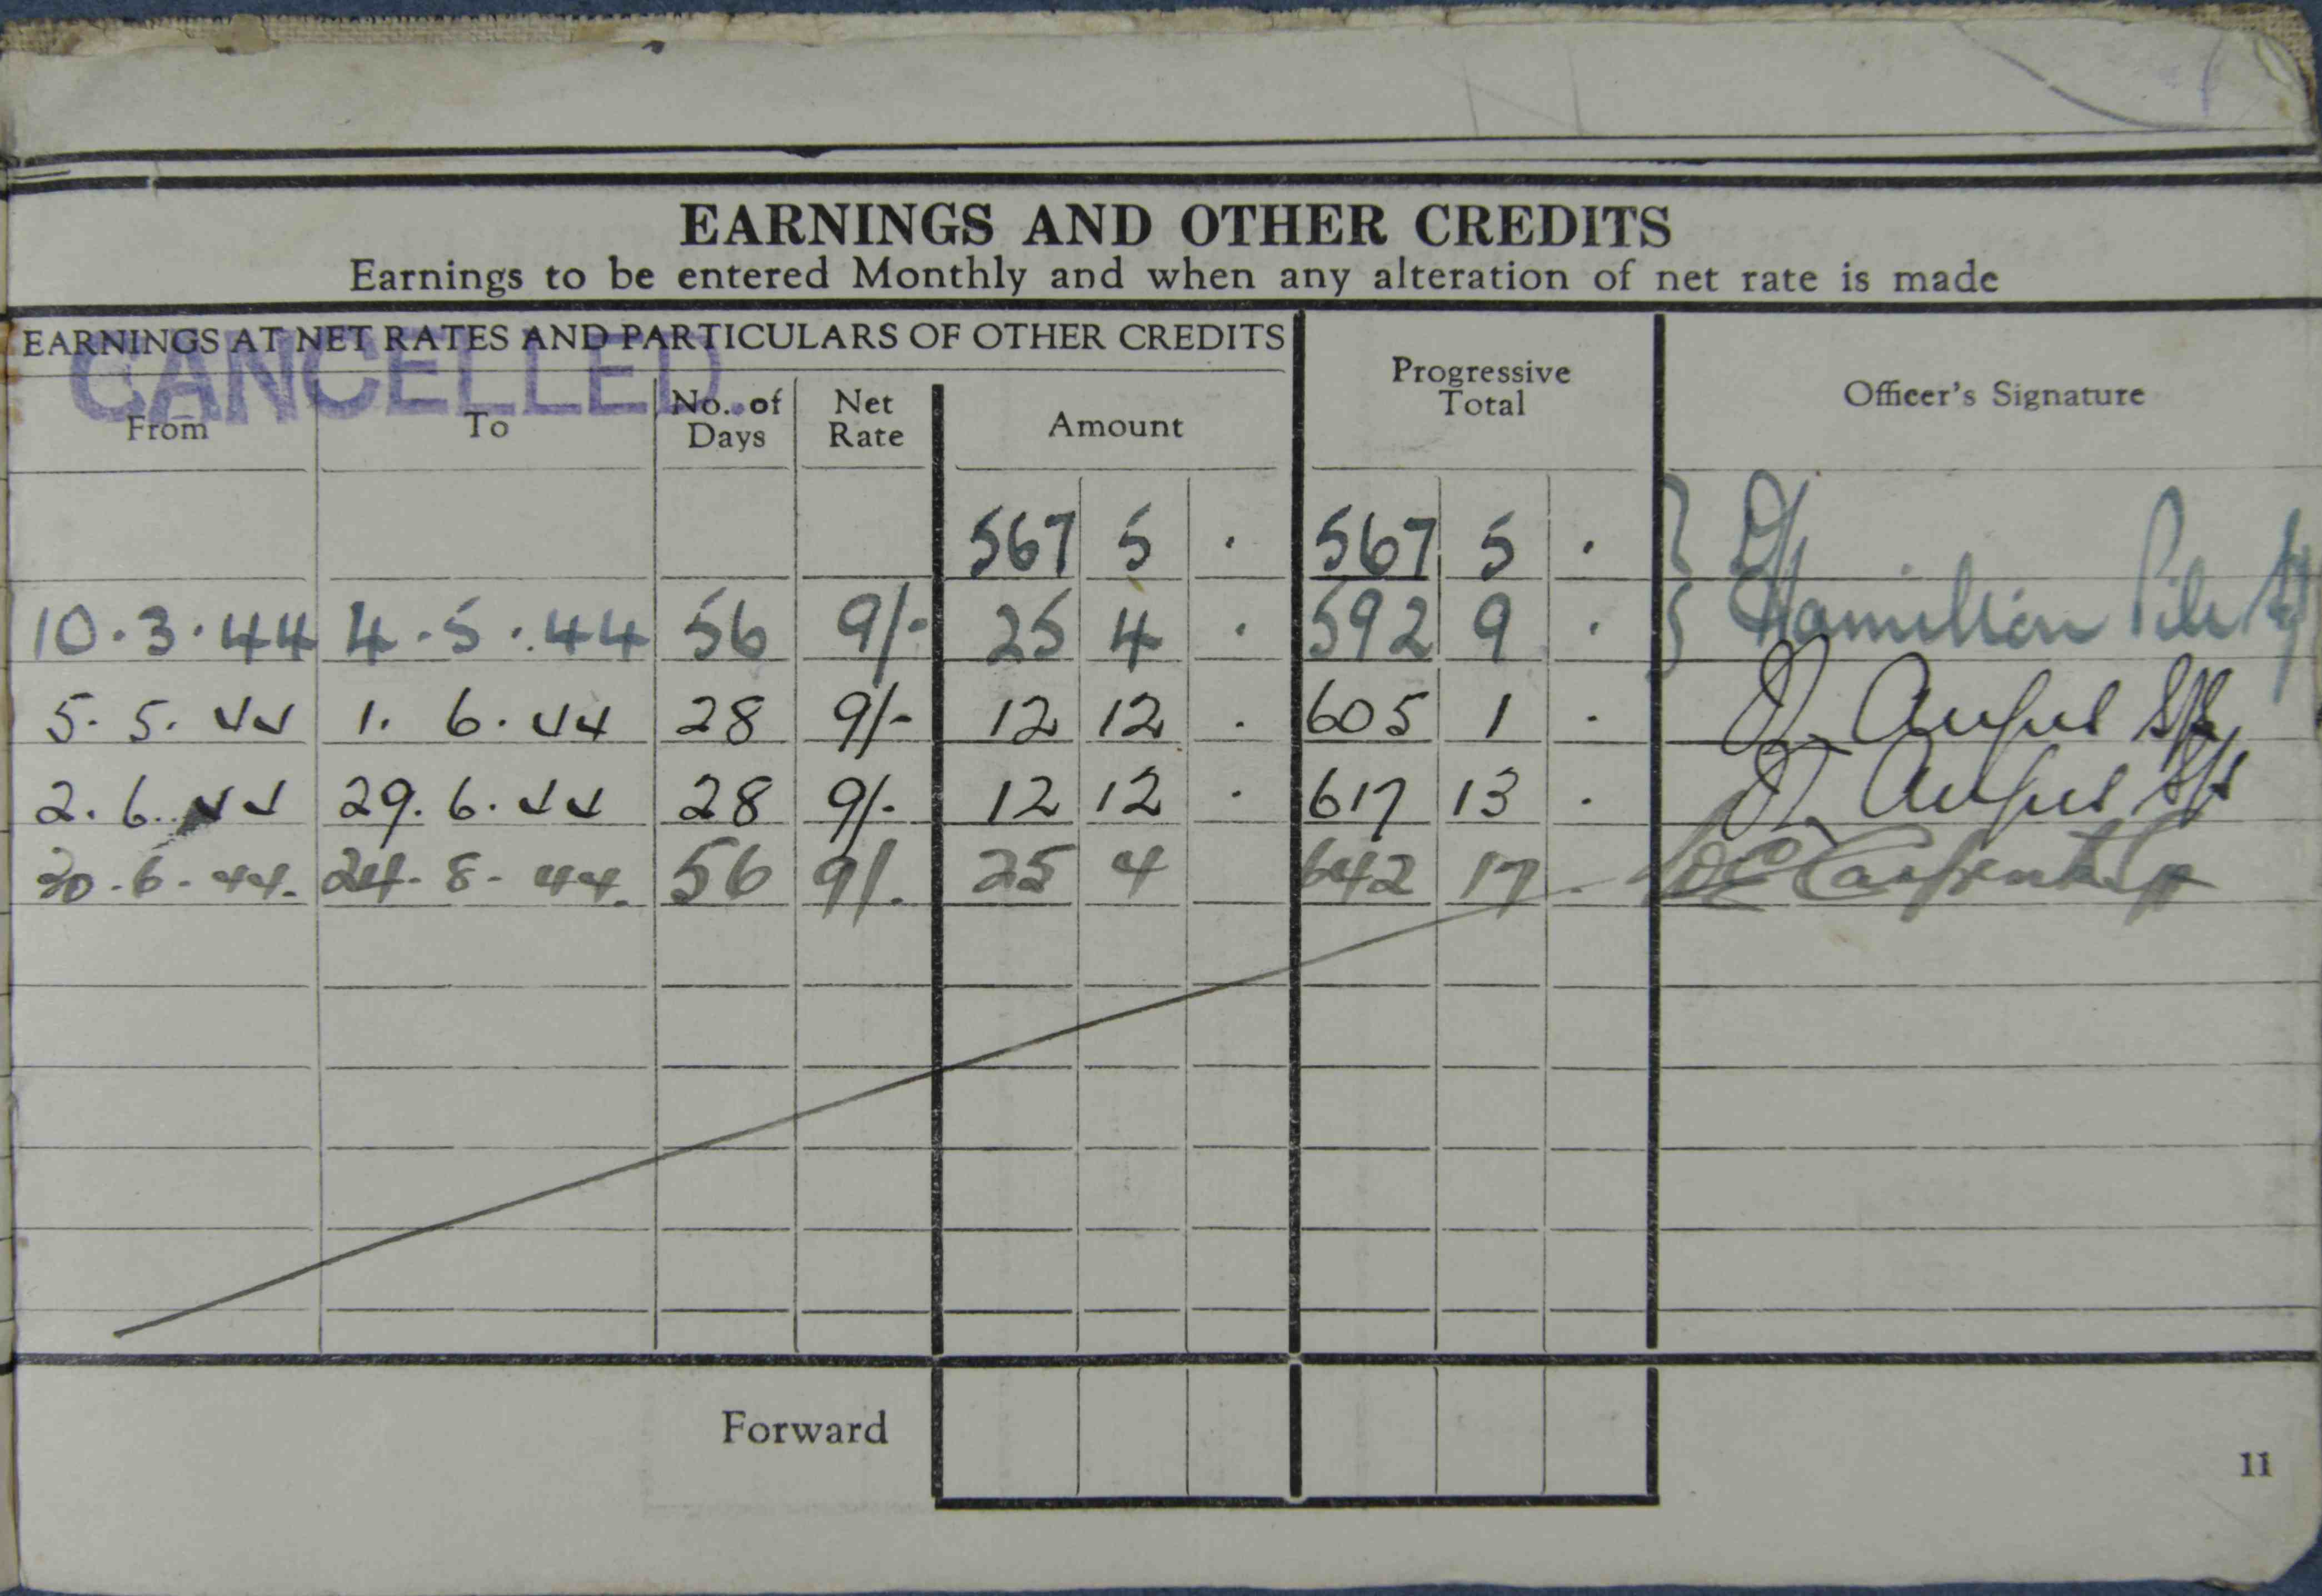 EARNINGS AND OTHER CREDITS
Earnings to be entered Monthly and when any alteration of net rate is made
EARNINGS AT NET RATES AND PARTICULARS OF OTHER CREDITS
CANCELLED
From To No. of Days Net Rate Amount Progressive Total Officer's Signature
567 5 · 567 5 ·
10.3.44 4.5.44 56 9/- 25 4 · 592 9 · Hamilton
5.5.44 1.6.44 28 9/- 12 12 · 605 1 · D. Angus
2.6.44 29.6.44 28 9/- 12 12 · 617 13 · D. Angus
30.6.44. 24.8.44. 56 9/. 25 4 642 17 .
Forward
11